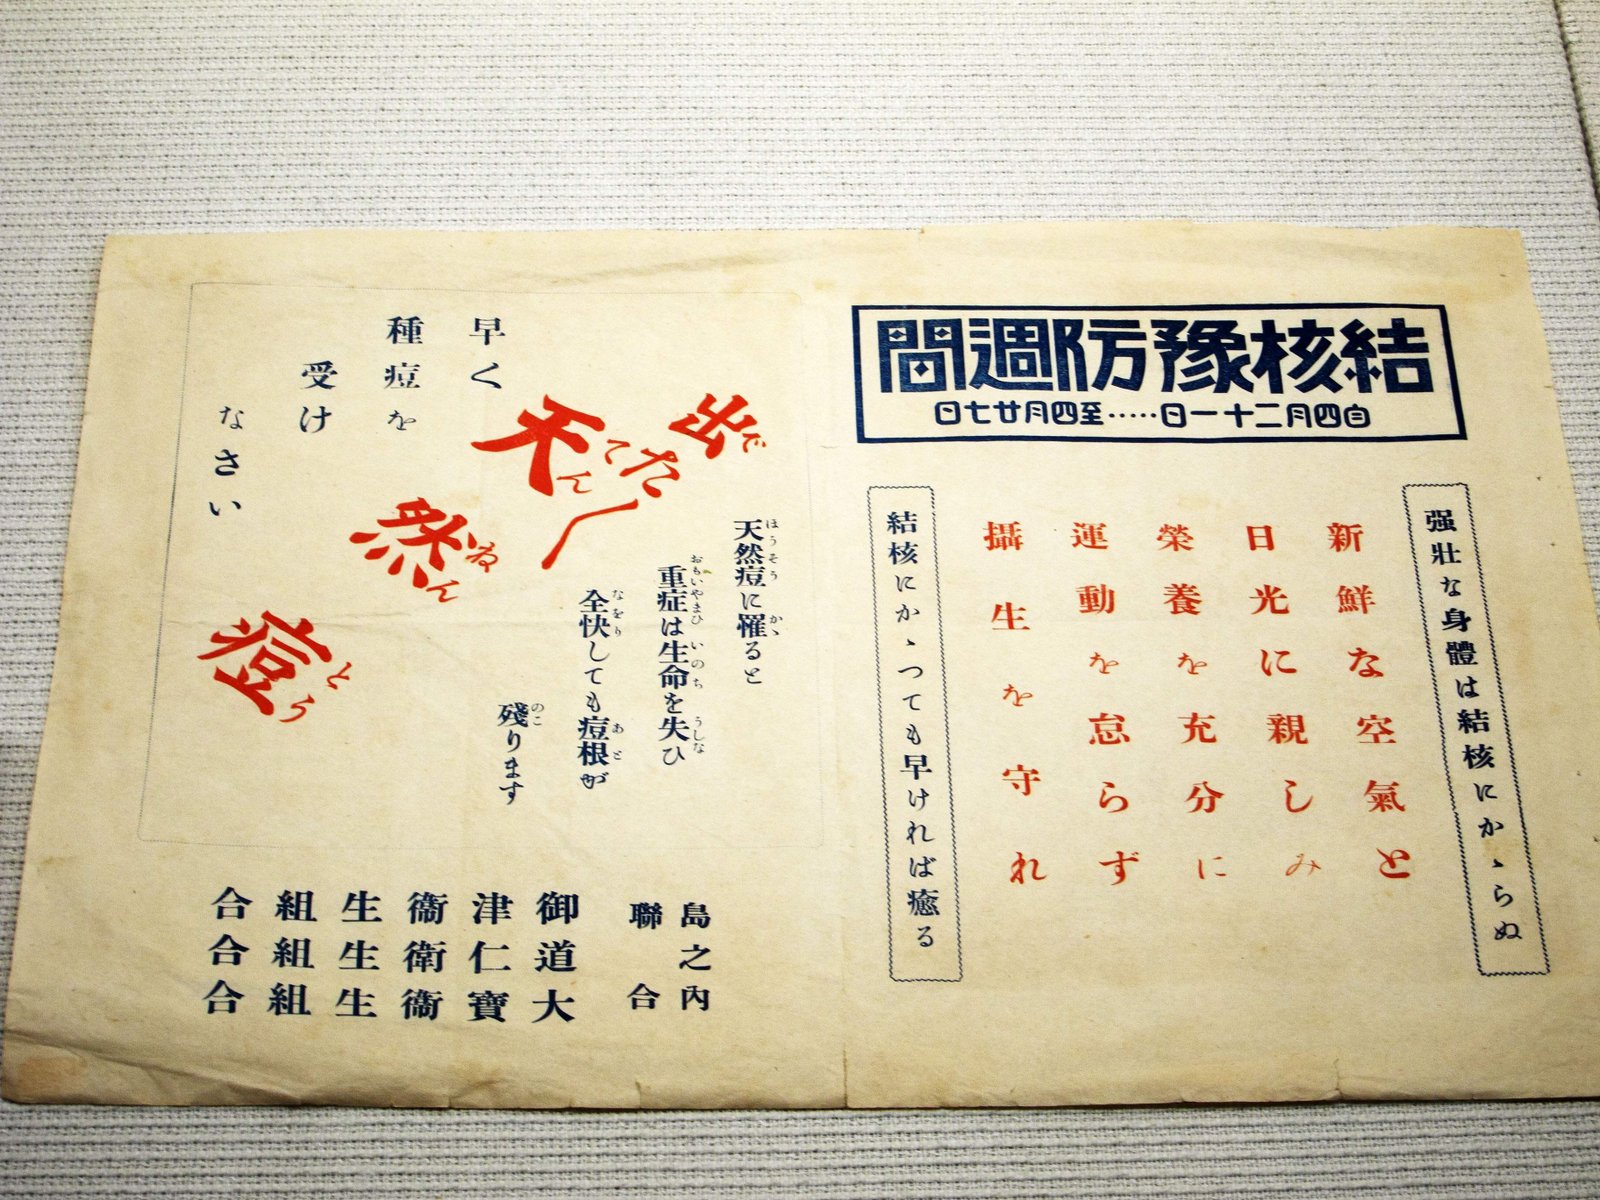 結核豫防週間
自四月二十一日……至四月廿七日
强壯な身體は結核にかゝらぬ
新鮮な空氣と
日光に親しみ
榮養を充分に
運動を怠らず
攝生を守れ
結核にかゝつても早ければ癒る
出た〱
天然痘
天然痘に罹ると
重症は生命を失ひ
全快しても痘根が
殘ります
早く
種痘を
受け
なさい
島之內
聯合
御津衞生組合
道仁衛生組合
大寶衞生組合